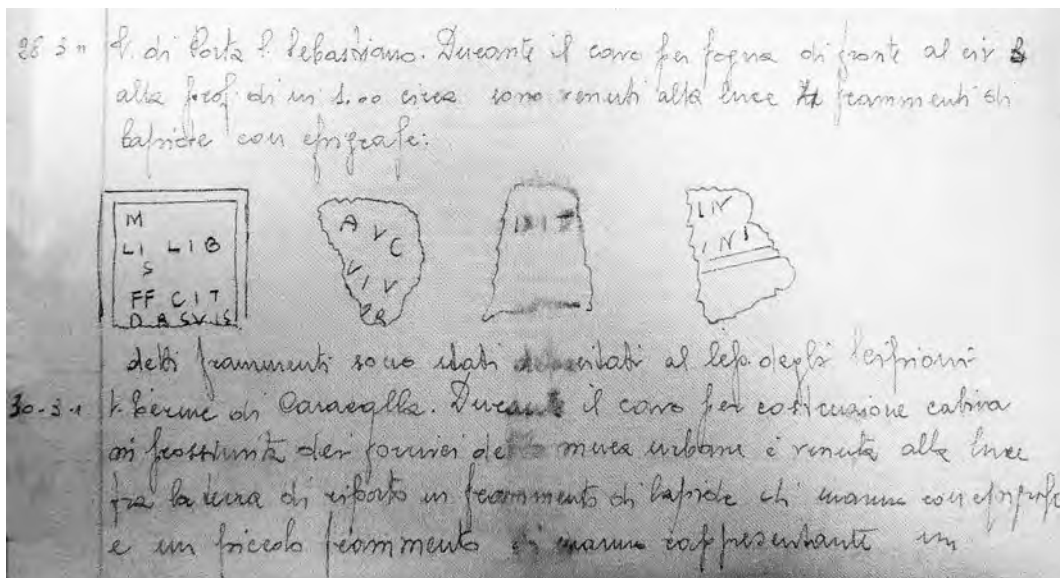 28 3 11 V. di Porta S. Sebastiano. Durante il cavo per fogna di fronte al civ 8
alla prof. di m 1.00 circa sono venuti alla luce frammenti di
lapide con epigrafe:
M
LI LIB
S
FF CIT
D B SVIS
A V C
VIV
LIV
INI
detti frammenti sono stati depositati al Sep. degli Scipioni
30-3-1 V. Terme di Caracalla. Durante il cavo per costruzione cabina
in prossimità dei fornici delle mura urbane è venuta alla luce
fra la terra di riporto un frammento di lapide di marmo con epigrafe
e un piccolo frammento di marmo rappresentante un